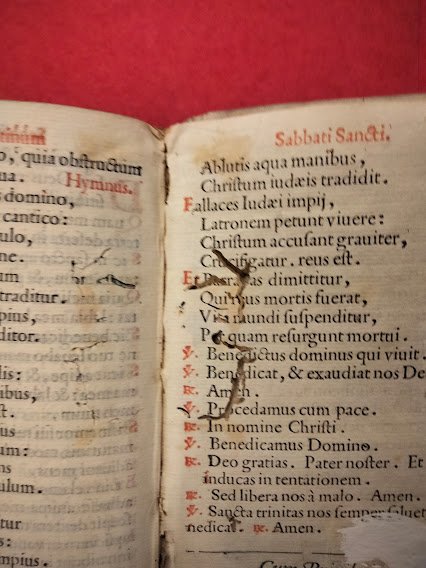 tinum
o, quia obstructum
ua. Hymnus.
s domino,
cantico:
ulo,
ne.
um
traditur.
pius,
ditor.
lis:
ibus,
st.
ulum.
tur
mpius.
Sabbati Sancti.
Ablutis aqua manibus,
Christum iudæis tradidit.
Fallaces Iudæi impij,
Latronem petunt viuere:
Christum accusant grauiter,
Crucifigatur. reus est.
Et Barabas dimittitur,
Qui reus mortis fuerat,
Vita mundi suspenditur,
Per quam resurgunt mortui.
℣. Benedictus dominus qui viuit.
℣. Benedicat, & exaudiat nos De
℟. Amen.
℣. Procedamus cum pace.
℟. In nomine Christi.
℣. Benedicamus Domino.
℟. Deo gratias. Pater noster. Et
inducas in tentationem.
℟. Sed libera nos à malo. Amen.
℣. Sancta trinitas nos semper saluet
nedicat. ℟. Amen.